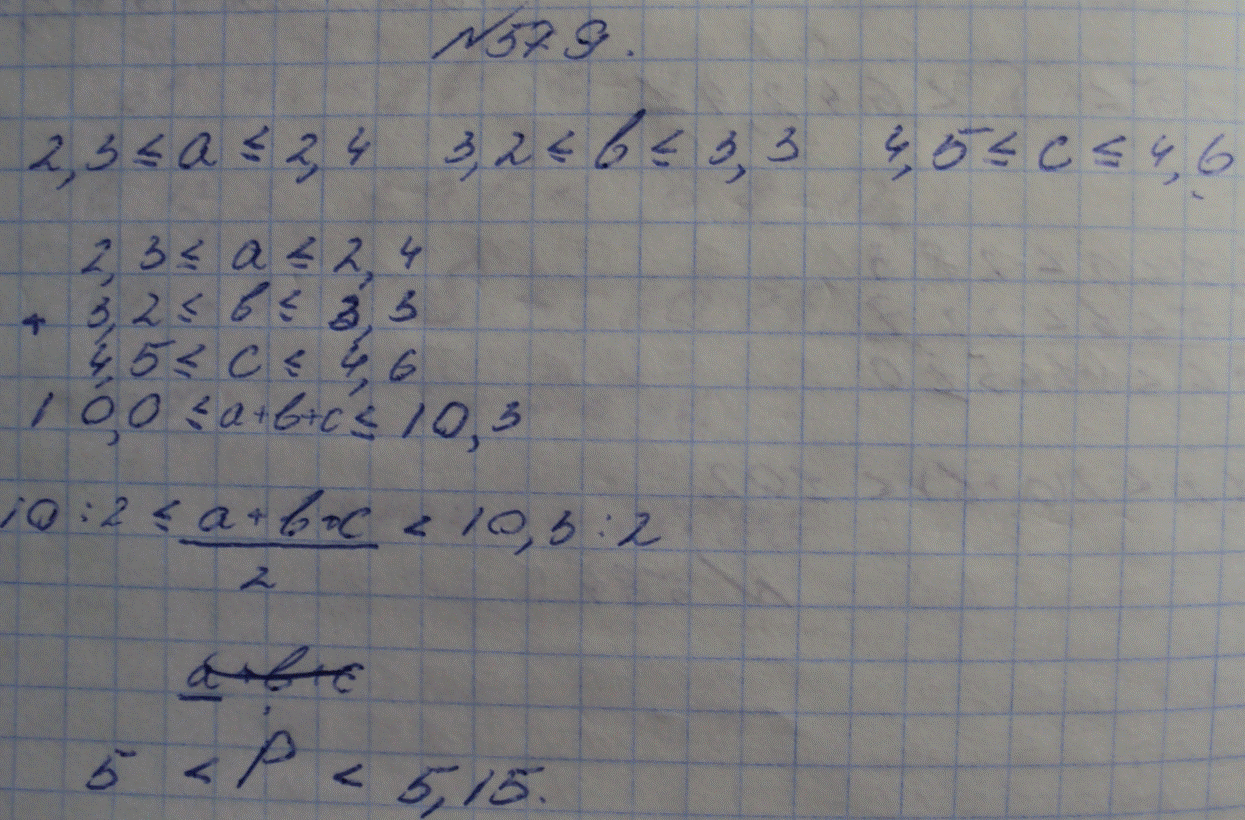 №579.
2,3 ≤ a ≤ 2,4 3,2 ≤ b ≤ 3,3 4,5 ≤ c ≤ 4,6
2,3 ≤ a ≤ 2,4
+ 3,2 ≤ b ≤ 3,3
4,5 ≤ c ≤ 4,6
10,0 ≤ a+b+c ≤ 10,3
10:2 ≤ a+b+c < 10,3:2
2
a+b+c
5 < P < 5,15.